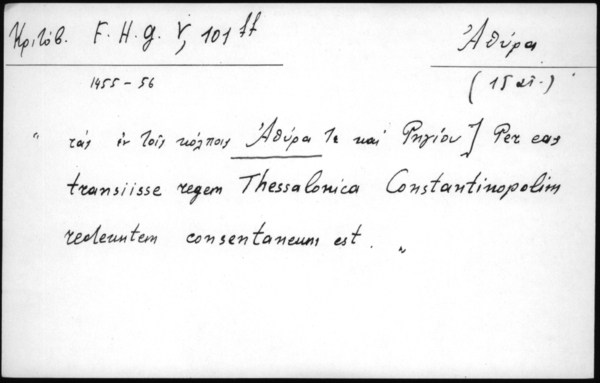 Κριτόβ. F. H. g. V, 101 ff
Ἀθύρα
1455 - 56
(15 αἰ.)
" τάς ἐν τοῖς κόλποις Ἀθύρα τε καί Ρηγίου] Per eas
transiisse regem Thessalonica Constantinopolim
redeuntem consentaneum est. "